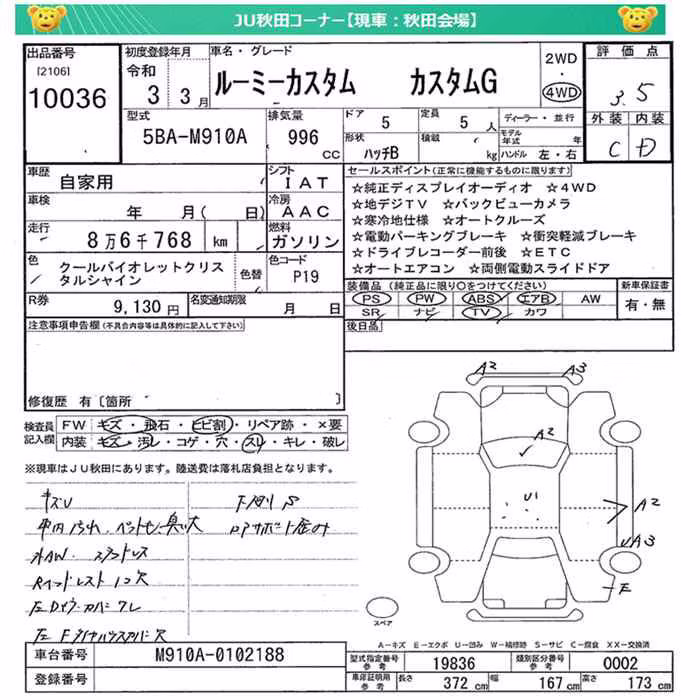 JU秋田コーナー【現車：秋田会場】
出品番号
[2106]
10036
初度登録年月
令和
3 3月
車名・グレード
ルーミーカスタム カスタムG
2WD
・
4WD
評価点
3.5
外装 内装
C D
型式
5BA-M910A
排気量
996
CC
ドア
5
定員
5 人
形状
ハッチB
積載
kg
ディーラー・並行
モデル年式 年
ハンドル 左・右
車歴
自家用
シフト
IAT
車検
年 月( 日)
冷房
AAC
走行
8万6千768 km
燃料
ガソリン
色
クールバイオレットクリス
タルシャイン
色替
色コード
P19
R券
9,130円
名変通知期限
月 日
セールスポイント(正常に機能するものに限ります)
☆純正ディスプレイオーディオ ☆4WD
☆地デジTV ☆バックビューカメラ
☆寒冷地仕様 ☆オートクルーズ
☆電動パーキングブレーキ ☆衝突軽減ブレーキ
☆ドライブレコーダー前後 ☆ETC
☆オートエアコン ☆両側電動スライドドア
装備品 (純正品に限り○をつけてください)
PS PW ABS エアB AW
SR ナビ TV カワ
新車保証書
有・無
後日品
注意事項申告欄(不具合内容等は具体的に記入して下さい)
修復歴 有〔箇所 〕
検査員
記入欄
FW キズ・飛石・ヒビ割・リペア跡・×要
内装 キズ・汚レ・コゲ・穴・スレ・キレ・破レ
※現車はJU秋田にあります。陸送費は落札店負担となります。
キズU
車内汚れ
外AW
A2 A3
A2
U1
A2
UA3
E
スペア
A－キズ E－エクボ U－凹み W－補修跡 S－サビ C－腐食 XX－交換済
車台番号
M910A-0102188
登録番号
型式指定番号
参考
19836
類別区分番号
参考
0002
車庫証明用
参考
長さ
372 cm
幅
167 cm
高さ
173 cm